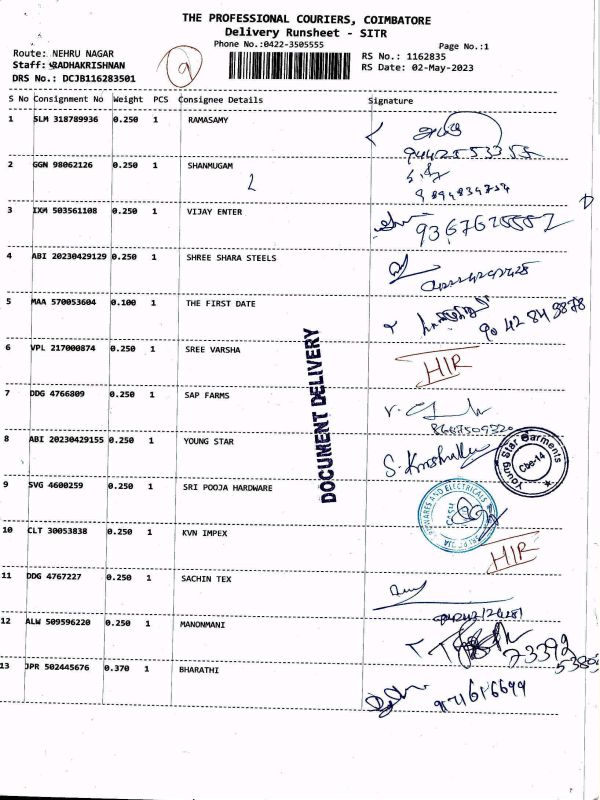 THE PROFESSIONAL COURIERS, COIMBATORE
Delivery Runsheet - SITR
Phone No.:0422-3505555
Page No.:1
Route: NEHRU NAGAR
RS No.: 1162835
Staff: RADHAKRISHNAN
RS Date: 02-May-2023
DRS No.: DCJB116283501
9
S No Consignment No Weight PCS Consignee Details Signature
1 SLM 318789936 0.250 1 RAMASAMY
2 GGN 98062126 0.250 1 SHANMUGAM
3 IXM 503561108 0.250 1 VIJAY ENTER
4 ABI 20230429129 0.250 1 SHREE SHARA STEELS
5 MAA 570053604 0.100 1 THE FIRST DATE
90 42 84 3878
6 VPL 217000874 0.250 1 SREE VARSHA
HIR
7 DDG 4766809 0.250 1 SAP FARMS
8 ABI 20230429155 0.250 1 YOUNG STAR
Young Star Garments
Cbe-14
9 SVG 4600259 0.250 1 SRI POOJA HARDWARE
10 CLT 30053838 0.250 1 KVN IMPEX
HIR
11 DDG 4767227 0.250 1 SACHIN TEX
12 ALW 509596220 0.250 1 MANONMANI
73392
53895
13 JPR 502445676 0.370 1 BHARATHI
DOCUMENT DELIVERY